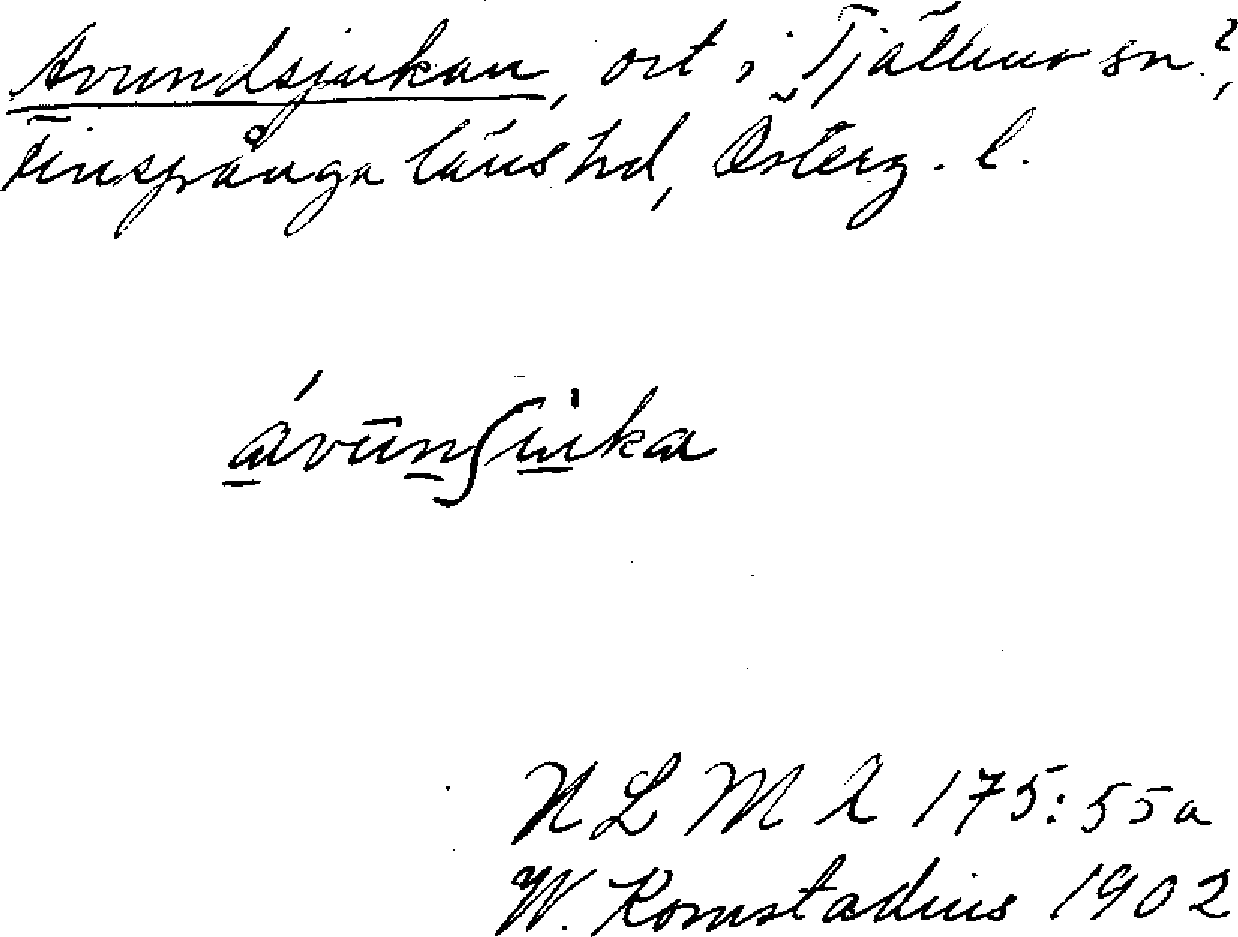 Avundsjukan, ort i Tjällmo sn?,
Finspånga läns hd, Österg. l.
ávūnʃuka
N L M A 175:55a
W. Romstadius 1902